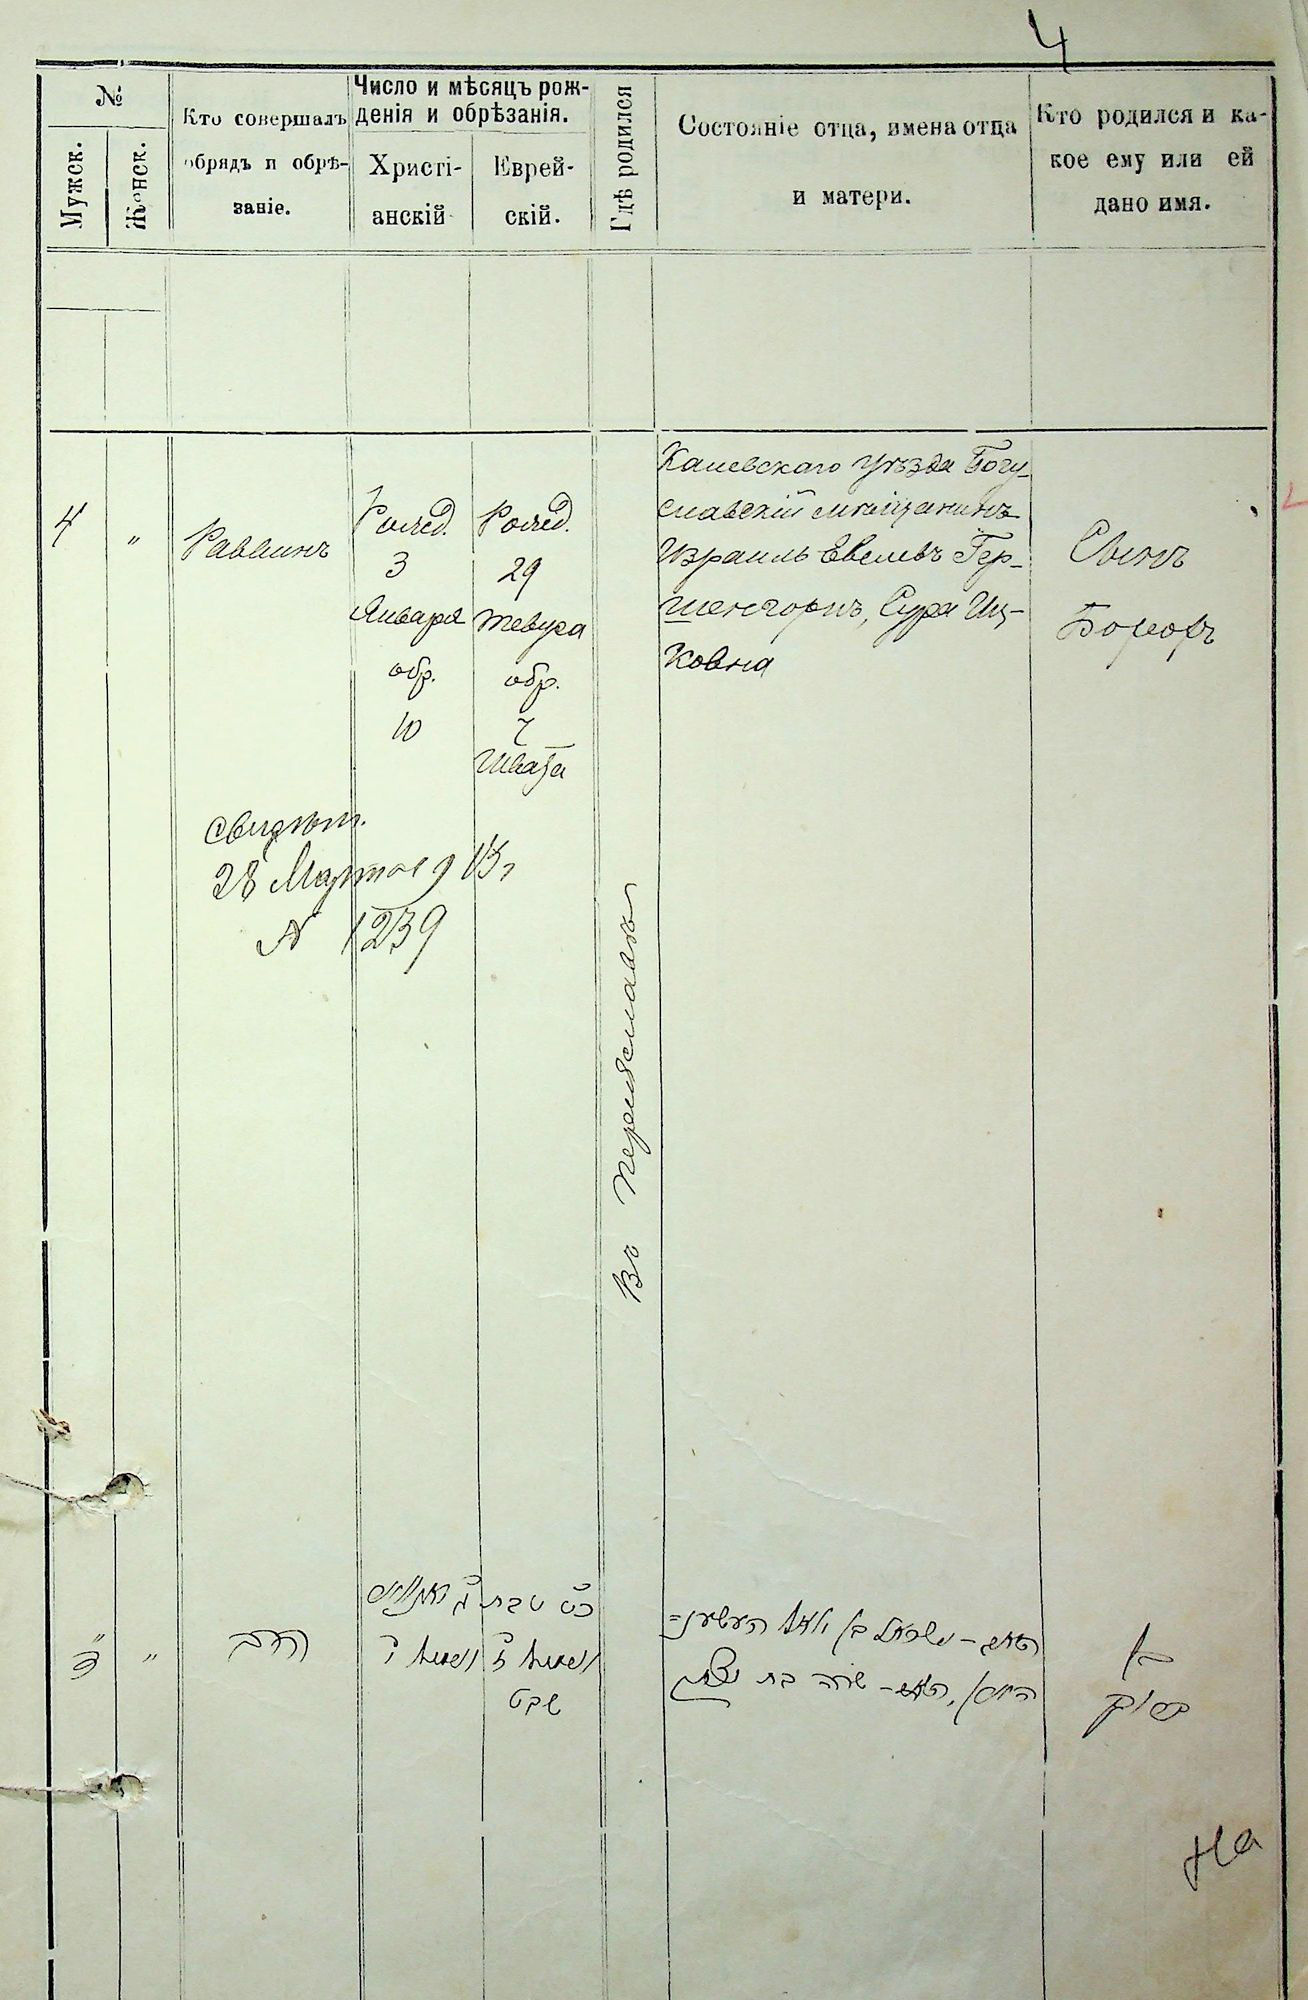 4
№
Мужск.
Женск.
Кто совершалъ
обрядъ и обрѣ-
заніе.
Число и мѣсяцъ рож-
денія и обрѣзанія.
Христі-
анскій
Еврей-
скій.
Гдѣ родился
Состояніе отца, имена отца
и матери.
Кто родился и ка-
кое ему или ей
дано имя.
4
"
Раввинъ
Рожд.
3
Января
обр.
10
Рожд.
29
Тевуса
обр.
7
Швата
Въ Переяславѣ
Каневскаго уѣзда Богу-
славскій мѣщанинъ
Израиль Евелевъ Гер-
шенгорнъ, Сура Иц-
ковна
Сынъ
Борохъ
свидѣт.
28 Марта 913 г
N 1239
"
הרב
כט טבת
שבט
שרה בת
בן
ברוך
На